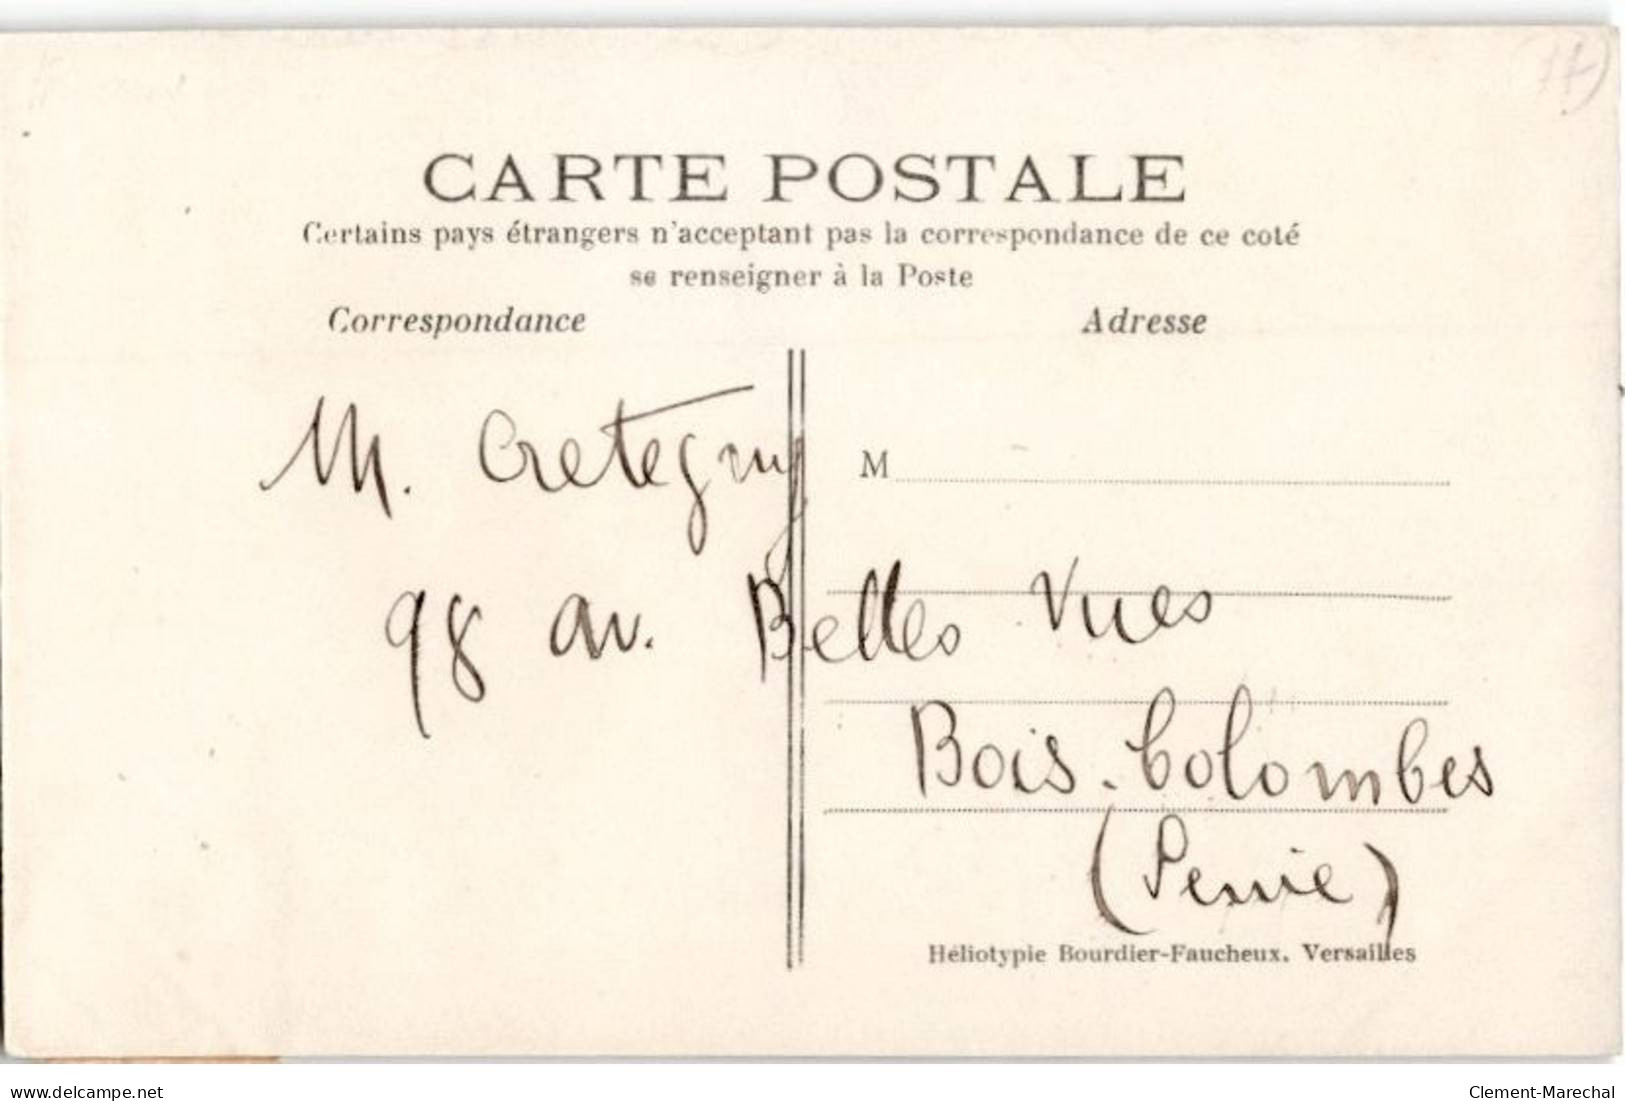 CARTE POSTALE
Certains pays étrangers n'acceptant pas la correspondance de ce coté
se renseigner à la Poste
Correspondance
Adresse
M. Cretegny
M
98 av. Belles Vues
Bois-Colombes
(Seine)
Héliotypie Bourdier-Faucheux. Versailles
delcampe.net
Clement-Marechal